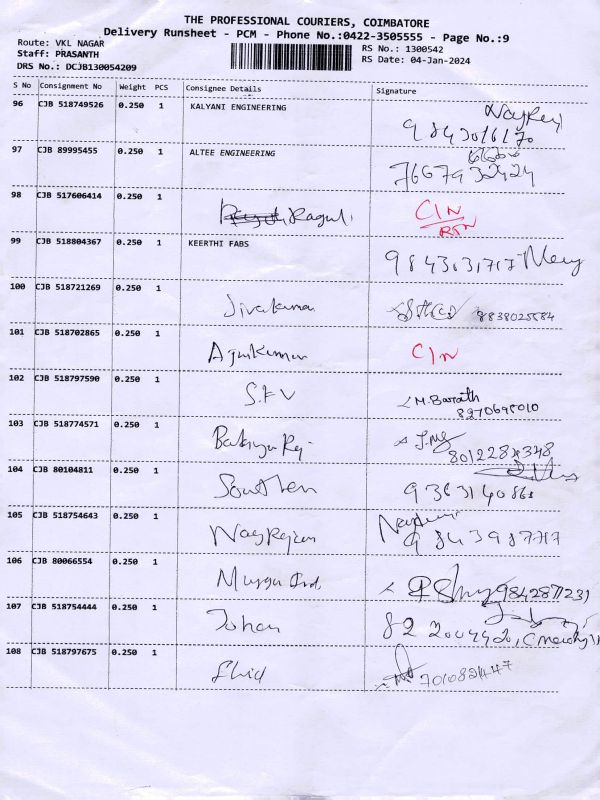 THE PROFESSIONAL COURIERS, COIMBATORE
Delivery Runsheet - PCM - Phone No.:0422-3505555 - Page No.:9
Route: VKL NAGAR
Staff: PRASANTH
DRS No.: DCJB130054209
RS No.: 1300542
RS Date: 04-Jan-2024
S No Consignment No Weight PCS Consignee Details Signature
96 CJB 518749526 0.250 1 KALYANI ENGINEERING
9843016170
97 CJB 89995455 0.250 1 ALTEE ENGINEERING
7667932424
98 CJB 517606414 0.250 1 Ragul C/N
RTN
99 CJB 518804367 0.250 1 KEERTHI FABS
9843031717
100 CJB 518721269 0.250 1
Sivakumar 8838025584
101 CJB 518702865 0.250 1
C/N
102 CJB 518797590 0.250 1
S.F.V M.Barath
8270698010
103 CJB 518774571 0.250 1
8012284348
104 CJB 80104811 0.250 1
Southern
105 CJB 518754643 0.250 1
Nagrajan 9843987717
106 CJB 80066554 0.250 1
107 CJB 518754444 0.250 1
Johan
108 CJB 518797675 0.250 1